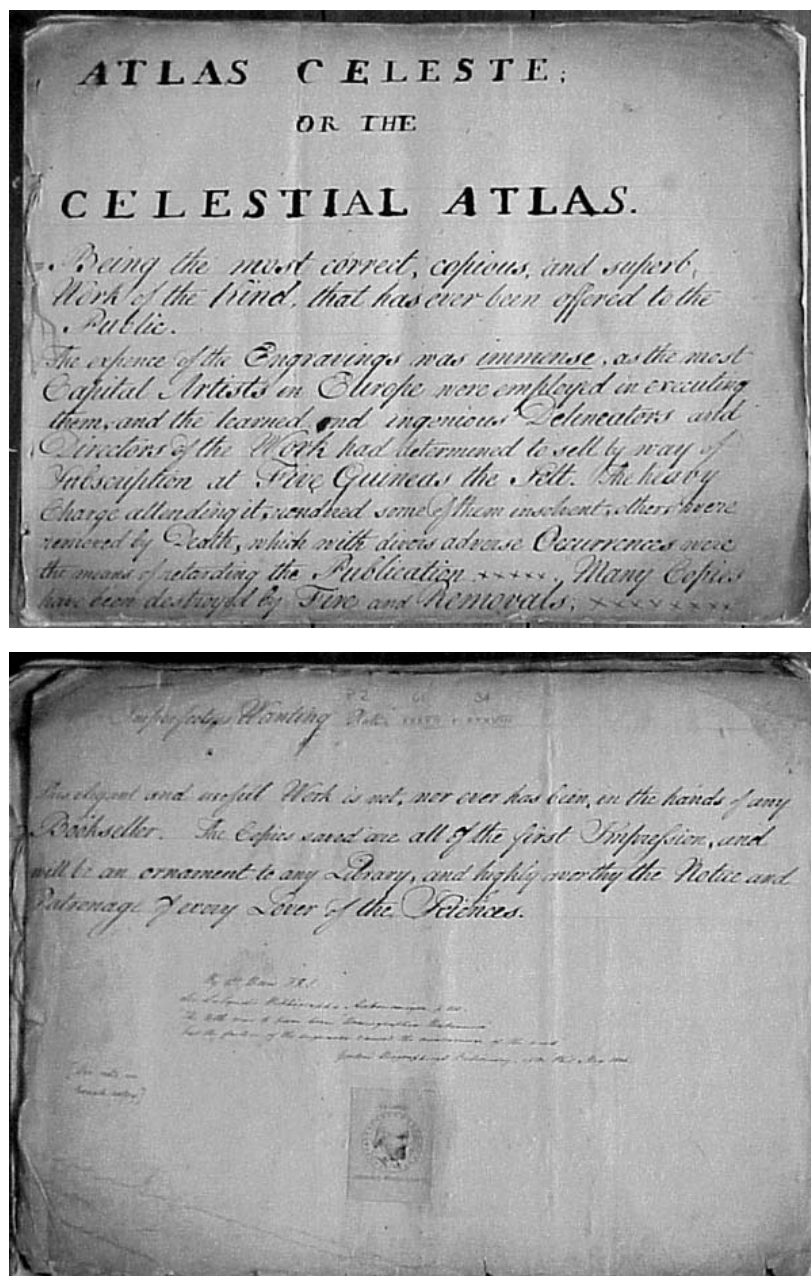 ATLAS CELESTE;
OR THE
CELESTIAL ATLAS.
Being the most correct, copious, and superb,
Work of the Kind, that has ever been offered to the
Public.
The expence of the Engravings was immense, as the most
Capital Artists in Europe were employed in executing
them, and the learned, and ingenious Delineators and
Directors of the Work had determined to sell by way of
Subscription at Five Guineas the Sett. The heavy
Charge attending it, rendred some of them insolvent, others were
removed by Death, which with divers adverse Occurrences were
the means of retarding the Publication xxxxx. Many Copies
have been destroyed by Fire and Removals; xxxxxxxx
Wanting
This elegant and useful Work is not, nor ever has been, in the hands of any
Bookseller. The Copies saved are all of the first Impression, and
will be an ornament to any Library, and highly worthy the Notice and
Patronage of every Lover of the Sciences.